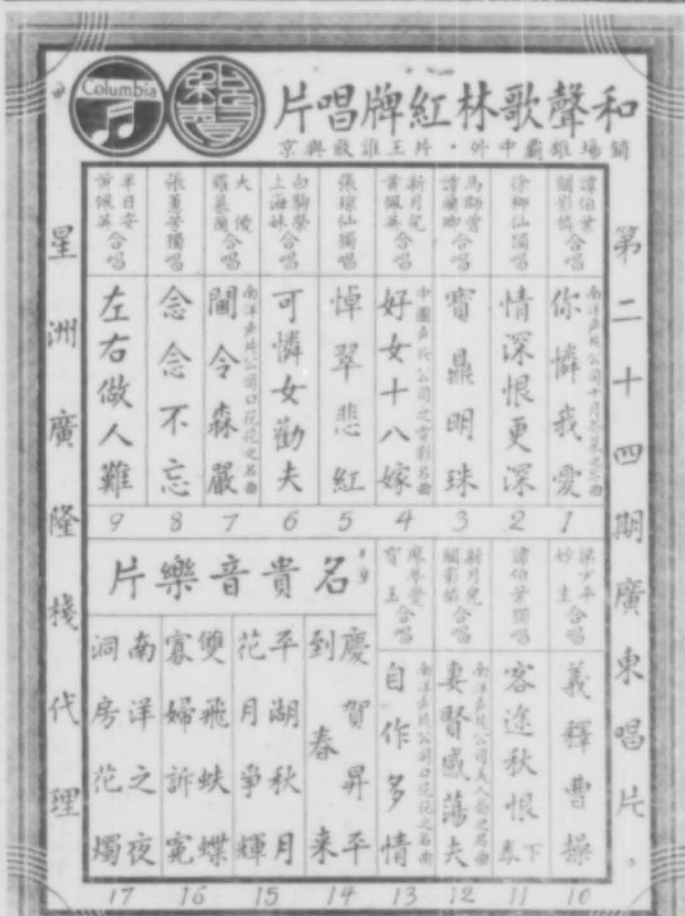 Columbia
和聲歌林紅牌唱片
銷場雄霸中外・片王誰敢與京
第二十四期廣東唱片。
譚伯葉
關影憐 合唱
你憐我愛
1
徐柳仙獨唱
情深恨更深
2
馬師曾
譚蘭卿 合唱
寶鼎明珠
3
新月兒
黃佩英 合唱
中國声片公司之電影名曲
好女十八嫁
4
張琼仙獨唱
悼翠悲紅
5
白駒榮
上海妹 合唱
可憐女勸夫
6
大傻
羅慕蘭 合唱
南洋声片公司口花花之名曲
閫令森嚴
7
張蕙芳獨唱
念念不忘
8
半日安
黃佩英 合唱
左右做人難
9
梁少平
妙生 合唱
義釋曹操
10
譚伯葉獨唱
客途秋恨 下卷
11
新月兒
關影憐 合唱
妻賢感蕩夫
12
廖夢覺
寶玉 合唱
南洋声片公司口花花之名曲
自作多情
13
名貴音樂片
慶賀昇平
到春來
14
平湖秋月
花月爭輝
15
雙飛蝴蝶
寡婦訴冤
16
南洋之夜
洞房花燭
17
星洲廣隆棧代理